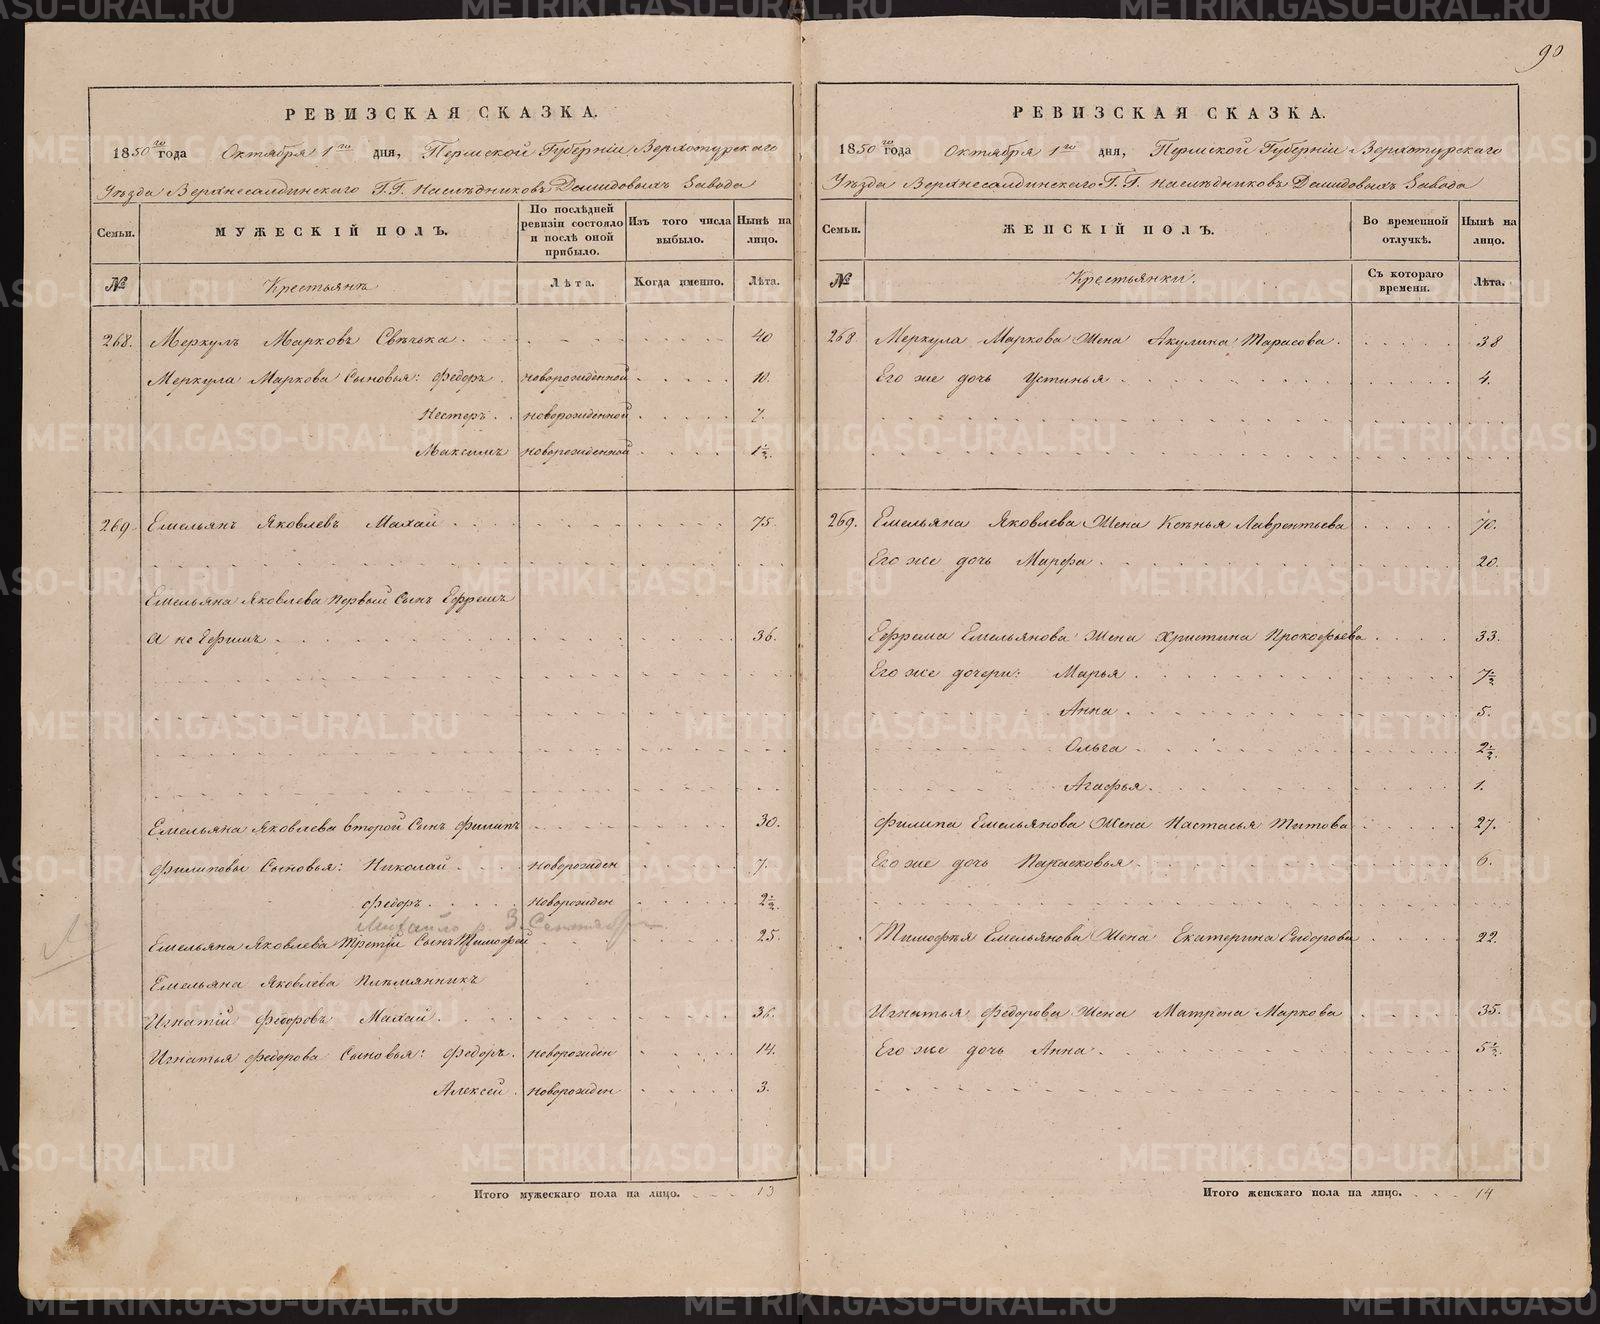 90
РЕВИЗСКАЯ СКАЗКА.
1850го года Октября 1го дня, Пермской Губерніи Верхотурскаго
Уѣзда Верхнесалдинскаго Г.Г. Наслѣдниковъ Демидовыхъ Завода
Семьи.
МУЖЕСКІЙ ПОЛЪ.
По послѣдней ревизіи состояло и послѣ оной прибыло.
Изъ того числа выбыло.
Нынѣ на лицо.
№
Крестьянъ
Лѣта.
Когда именно.
Лѣта.
268. Меркулъ Марковъ Свѣчька 40
Меркула Маркова Сыновья: Федоръ новорожденной 10.
Нестеръ новорожденной 7.
Максимъ новорожденной 1½
269. Емельянъ Яковлевъ Махай 75.
Емельяна Яковлева Первый Сынъ Ефремъ
а не Ефимъ 36.
Емельяна Яковлева второй Сынъ Филипъ 30.
Филиповы Сыновья: Николай новорожден 7.
Федоръ новорожден 2½
Михайло р. 3 Сентября
Емельяна Яковлева Третій Сынъ Тимофей 25.
Емельяна Яковлева Племянникъ
Игнатій Федоровъ Махай 36.
Игнатья Федорова Сыновья: Федоръ новорожден 14.
Алексей новорожден 3.
Итого мужескаго пола на лицо. 13
РЕВИЗСКАЯ СКАЗКА.
1850го года Октября 1го дня, Пермской Губерніи Верхотурскаго
Уѣзда Верхнесалдинскаго Г.Г. Наслѣдниковъ Демидовыхъ Завода
Семьи.
ЖЕНСКІЙ ПОЛЪ.
Во временной отлучкѣ.
Нынѣ на лицо.
№
Крестьянки.
Съ котораго времени.
Лѣта.
268 Меркула Маркова Жена Акулина Тарасова 38
Его же дочь Устинья 4.
269. Емельяна Яковлева Жена Ксѣнья Лаврентьева 70.
Его же дочь Марфа 20.
Ефрема Емельянова Жена Христина Прокофьева 33.
Его же дочери: Марья 7½
Анна 5.
Ольга 2½
Агафья 1.
Филипа Емельянова Жена Настасья Титова 27.
Его же дочь Парасковья 6.
Тимофѣя Емельянова Жена Екатерина Сидорова 22.
Игнатья Федорова Жена Матрена Маркова 35.
Его же дочь Анна 5½
Итого женскаго пола на лицо. 14
METRIKI.GASO-URAL.RU